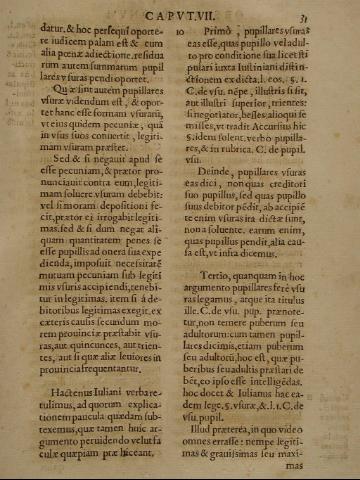 CAPVT. VII. 31
datur, & hoc persequi oporte-
te iudicem palam est & cum
alia pœnæ adiectione, residua
rum autem summarum pupil
lares vsuras pendi oportet.
Quæ sint autem pupillares
vsuræ videndum est, & opor-
tet hanc esse formam vsurarũ,
vt eius quidem pecuniæ, quã
in vsus suos conuertit, legiti-
mam vsuram præstet.
Sed & si negauit apud se
esse pecuniam, & prætor pro
nunciauit contra eum, legiti-
mam soluere vsuram debebit:
vel si moram depositioni fe-
cit, prætor ei irrogabit legiti-
mas. sed & si dum negat ali-
quam quantitatem penes se
esse pupilli ad onera sua expe
dienda, imposuit necessitatẽ
mutuam pecuniam sub legiti
mis vsuris accipiendi, tenebi-
tur in legitimas. item si à de-
bitoribus legitimas exegit. ex
cæteris causis secundum mo-
rem prouinciæ præstabit vsu-
ras, aut quincunces, aut trien-
tes, aut si quæ aliæ leuiores in
prouincia frequentantur.
Hactenus Iuliani verba re-
tulimus, ad quorum explica-
tionem paucula quædam sub-
texemus, quæ tamen huic ar-
gumento peruidendo velut fa
culæ quæpiam præ luceant.
10 Primò, pupillares vsuras
eas esse, quas pupillo vel adul-
to pro conditione sua licet sti
pulari iuxta Iustiniani distin-
ctionem ex dicta. l. eos. §. 1.
C. de vsu. nẽpe, illustris si sit,
aut illustri superior, trientes:
si negotiator, besses. alioqui se
misses, vt tradit Accursius hîc
§. idem solent. verbo pupilla-
res, & in rubrica. C. de pupil.
vsu.
Deinde, pupillares vsuras
eas dici, non quas creditori
suo pupillus, sed quas pupillo
suus debitor pẽdit, ab accipiẽ
te enim vsuras ita dictæ sunt,
non a soluente. earum enim,
quas pupillus pendit, alia cau-
sa est, vt infra dicemus.
Tertio, quanquam in hoc
argumento pupillares ferè vsu
ras legamus, atque ita titulus
ille. C. de vsu. pup. prænote-
tur, non temere puberum seu
adultorum: cum tamen pupil-
lares dicimis, etiam puberum
seu adultorũ, hoc est, quæ pu-
beribus seu adultis præstari de
bẽt, eo ipso esse intelligẽdas.
hoc docet & Iulianus hac ea-
dem lege. §. vsuræ, &. l. 1. C. de
vsu. pupil.
Illud præterea, in quo video
omnes errasse: nempe legiti-
mas & grauissimas seu maxi
mas